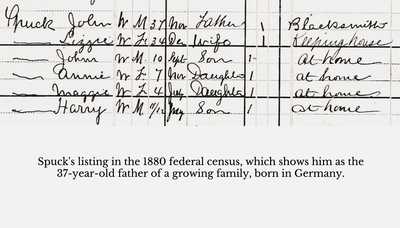 Spuck John W M 37 Father 1 Blacksmith
Lizzie W F 34 Wife 1 Keeping house
John W M 10 Son 1 at home
Annie W F 7 Daughter 1 at home
Maggie W F 4 Daughter at home
Harry W M Son at home
Spuck's listing in the 1880 federal census, which shows him as the
37-year-old father of a growing family, born in Germany.